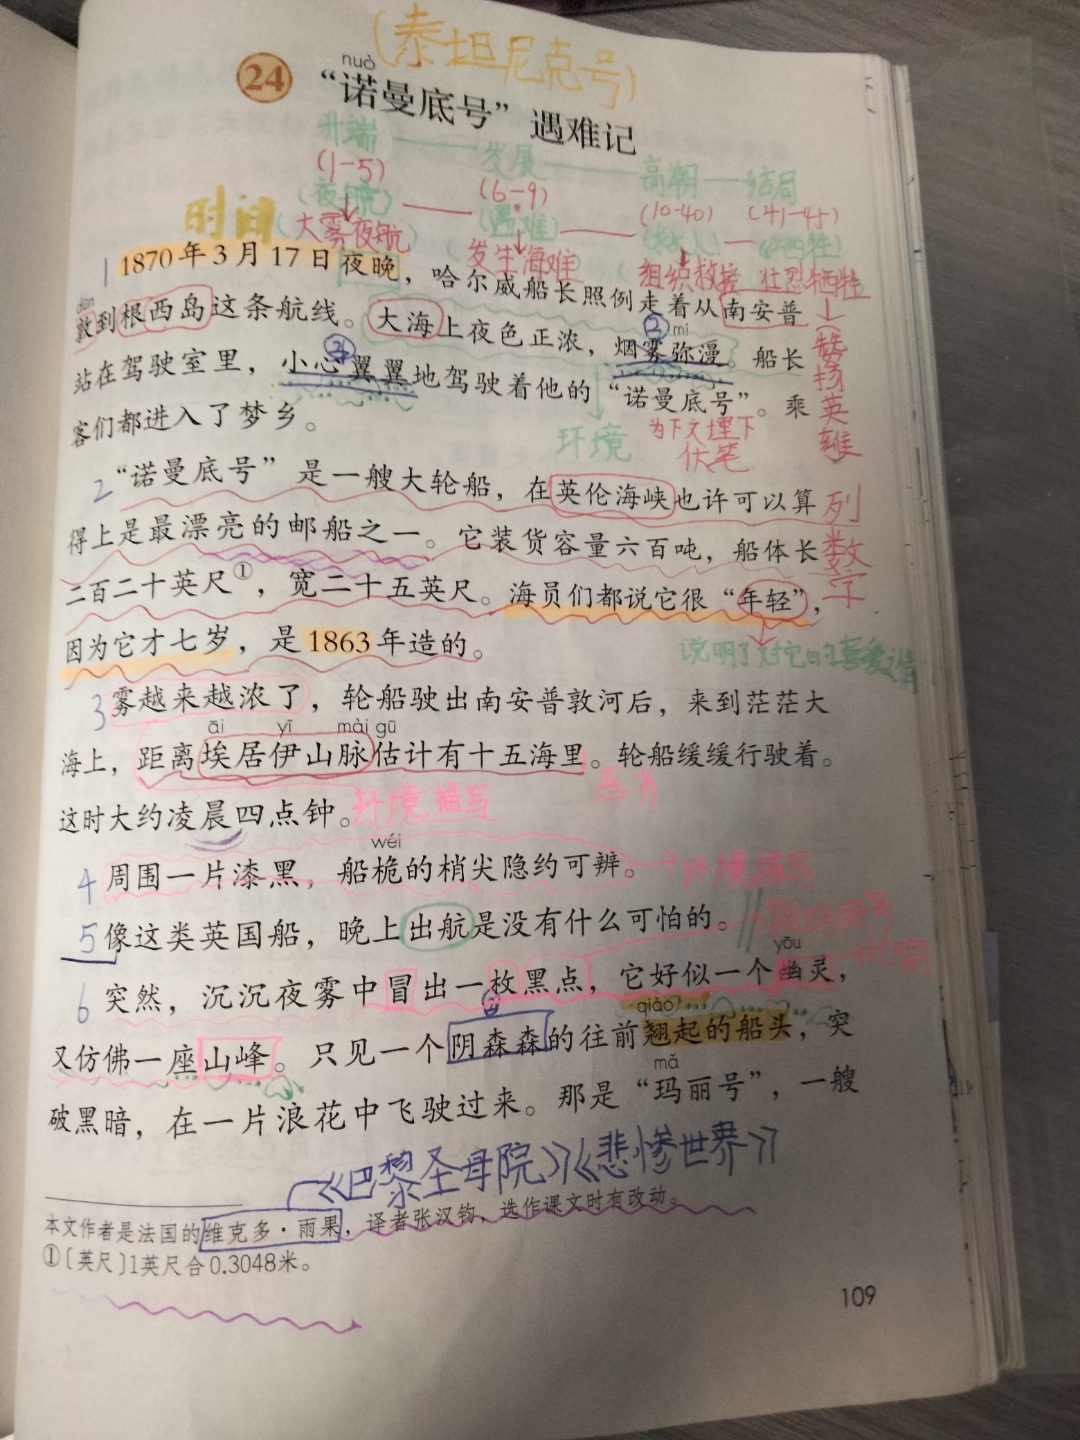 (泰坦尼克号)
nuò
24 “诺曼底号”遇难记
开端 发展 高潮 结局
(1-5) (6-9) (10-40) (41-45)
(遇难)
大雾夜航 发生海难 组织救援 壮烈牺牲
时间
1 1870年3月17日夜晚，哈尔威船长照例走着从南安普
dūn
敦到根西岛这条航线。大海上夜色正浓，烟雾弥漫。船长
mí
站在驾驶室里，小心翼翼地驾驶着他的“诺曼底号”。乘
客们都进入了梦乡。
环境 为下文埋下
伏笔
赞扬英雄
2 “诺曼底号”是一艘大轮船，在英伦海峡也许可以算
得上是最漂亮的邮船之一。它装货容量六百吨，船体长
二百二十英尺①，宽二十五英尺。海员们都说它很“年轻”，
因为它才七岁，是1863年造的。
列数字
说明了对它的喜爱之情
3 雾越来越浓了，轮船驶出南安普敦河后，来到茫茫大
āi yī mài gū
海上，距离埃居伊山脉估计有十五海里。轮船缓缓行驶着。
这时大约凌晨四点钟。
环境描写
wéi
4 周围一片漆黑，船桅的梢尖隐约可辨。
环境描写
5 像这类英国船，晚上出航是没有什么可怕的。
yōu
6 突然，沉沉夜雾中冒出一枚黑点，它好似一个幽灵，
qiào
又仿佛一座山峰。只见一个阴森森的往前翘起的船头，突
mǎ
破黑暗，在一片浪花中飞驶过来。那是“玛丽号”，一艘
《巴黎圣母院》《悲惨世界》
本文作者是法国的维克多·雨果，译者张汉钧，选作课文时有改动。
①〔英尺〕1英尺合0.3048米。
109